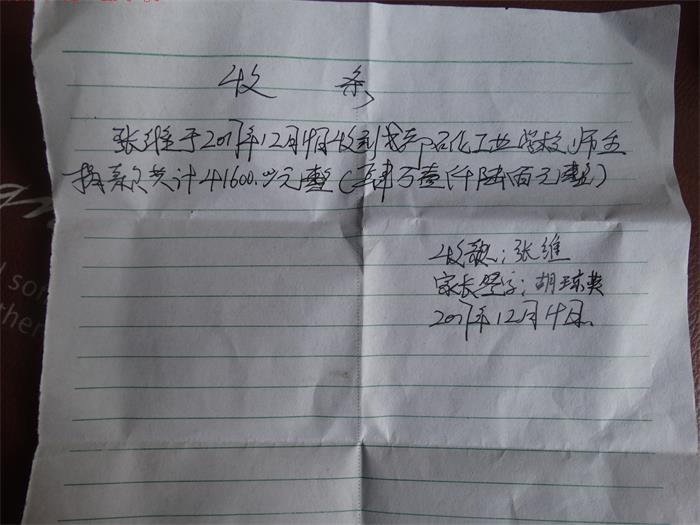 收 条
张维于2017年12月4日收到成都石化工业学校师生
捐款共计41600.00元整(肆万壹仟陆佰元整)
收款:张维
家长签字:胡琼英
2017年12月4日